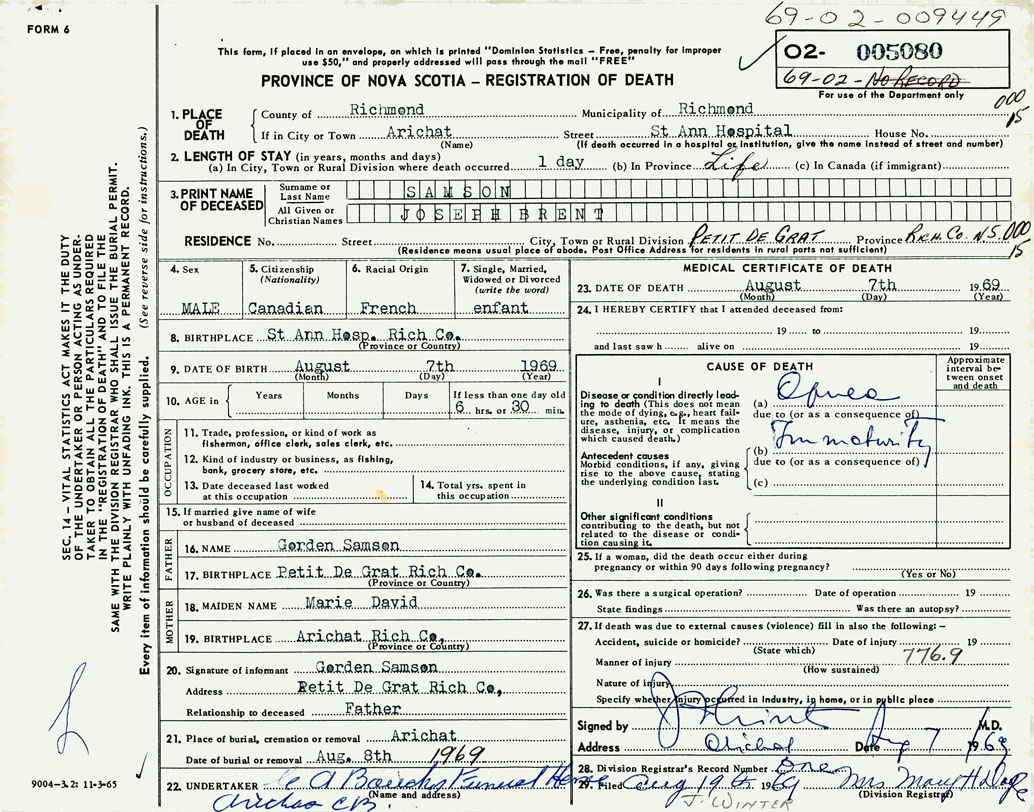 69-02-009449
FORM 6
This form, if placed in an envelope, on which is printed "Dominion Statistics – Free, penalty for improper
use $50," and properly addressed will pass through the mail "FREE"
02- 005080
69-02-NO RECORD
For use of the Department only
PROVINCE OF NOVA SCOTIA – REGISTRATION OF DEATH
000
15
1. PLACE OF DEATH
County of Richmond Municipality of Richmond
If in City or Town Arichat Street St Ann Hospital House No.
(Name) (If death occurred in a hospital or institution, give the name instead of street and number)
2. LENGTH OF STAY (in years, months and days)
(a) In City, Town or Rural Division where death occurred 1 day (b) In Province Life (c) In Canada (if immigrant)
3. PRINT NAME OF DECEASED
Surname or Last Name SAMSON
All Given or Christian Names JOSEPH BRENT
RESIDENCE No. Street City, Town or Rural Division PETIT DE GRAT Province RICH. CO. N.S. 000
15
(Residence means usual place of abode. Post Office Address for residents in rural parts not sufficient)
4. Sex
MALE
5. Citizenship
(Nationality)
Canadian
6. Racial Origin
French
7. Single, Married,
Widowed or Divorced
(write the word)
enfant
8. BIRTHPLACE St Ann Hosp. Rich Co.
(Province or Country)
9. DATE OF BIRTH August 7th 1969
(Month) (Day) (Year)
10. AGE in Years Months Days If less than one day old
6 hrs. or 30 min.
OCCUPATION
11. Trade, profession, or kind of work as
fisherman, office clerk, sales clerk, etc.
12. Kind of industry or business, as fishing,
bank, grocery store, etc.
13. Date deceased last worked
at this occupation
14. Total yrs. spent in
this occupation
15. If married give name of wife
or husband of deceased
FATHER
16. NAME Gorden Samson
17. BIRTHPLACE Petit De Grat Rich Co.
(Province or Country)
MOTHER
18. MAIDEN NAME Marie David
19. BIRTHPLACE Arichat Rich Co,
(Province or Country)
20. Signature of informant Gorden Samson
Address Petit De Grat Rich Co,
Relationship to deceased Father
21. Place of burial, cremation or removal Arichat
Date of burial or removal Aug. 8th 1969
22. UNDERTAKER C A Funeral Home
(Name and address)
Arichat C.B.
MEDICAL CERTIFICATE OF DEATH
23. DATE OF DEATH August 7th 1969
(Month) (Day) (Year)
24. I HEREBY CERTIFY that I attended deceased from:
19 to 19
and last saw h alive on 19
CAUSE OF DEATH
Approximate
interval be-
tween onset
and death
I
Disease or condition directly lead-
ing to death (This does not mean
the mode of dying, e.g., heart fail-
ure, asthenia, etc. It means the
disease, injury, or complication
which caused death.)
(a) Apnea
due to (or as a consequence of)
(b) Immaturity
due to (or as a consequence of)
(c)
Antecedent causes
Morbid conditions, if any, giving
rise to the above cause, stating
the underlying condition last.
II
Other significant conditions
contributing to the death, but not
related to the disease or condi-
tion causing it.
25. If a woman, did the death occur either during
pregnancy or within 90 days following pregnancy?
(Yes or No)
26. Was there a surgical operation? Date of operation 19
State findings Was there an autopsy?
27. If death was due to external causes (violence) fill in also the following: –
Accident, suicide or homicide? Date of injury 19
(State which)
Manner of injury 776.9
(How sustained)
Nature of injury
Specify whether injury occurred in industry, in home, or in public place
Signed by M.D.
Address Arichat Date Aug 7 1969
28. Division Registrar's Record Number One
29. Filed Aug 19th 1969 Mrs Mary H
(Division Registrar)
J. WINTER
SEC. 14 – VITAL STATISTICS ACT MAKES IT THE DUTY
OF THE UNDERTAKER OR PERSON ACTING AS UNDER-
TAKER TO OBTAIN ALL THE PARTICULARS REQUIRED
IN THE "REGISTRATION OF DEATH" AND TO FILE THE
SAME WITH THE DIVISION REGISTRAR WHO SHALL ISSUE THE BURIAL PERMIT.
WRITE PLAINLY WITH UNFADING INK. THIS IS A PERMANENT RECORD.
Every item of information should be carefully supplied. (See reverse side for instructions.)
9004-3.2: 11-3-65